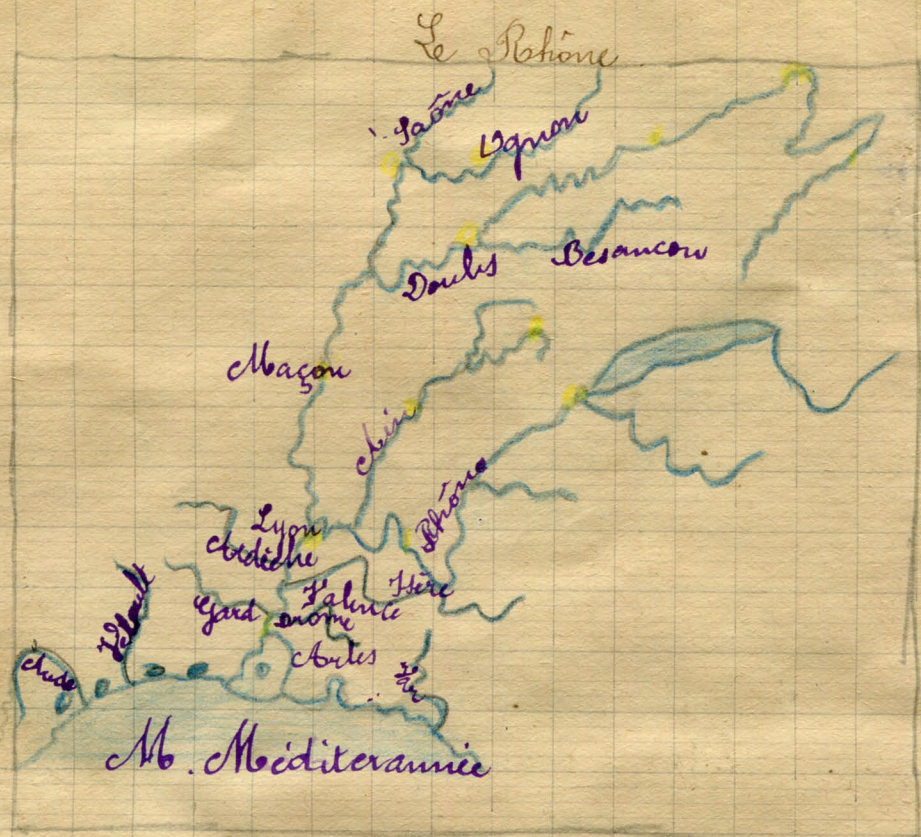 Le Rhône
Saône
Ognon
Doubs
Besancon
Maçon
Ain
Rhône
Lyon
Ardèche
Isère
Valence
Gard
Drome
Arles
Hérault
Aude
Var
M. Méditerannée